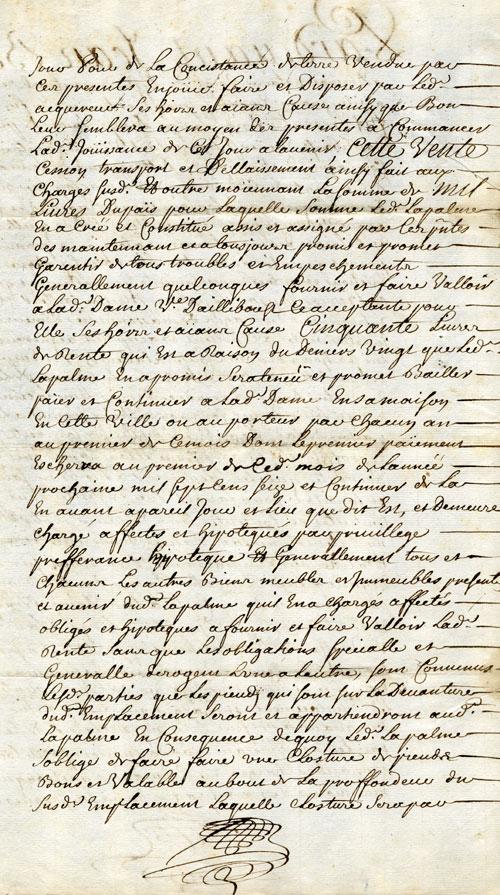 Jouir de la Consistance de terre Vendue par
Ces presentes En Jouir faire et Disposer par Led.
acquereur Ses hoirs et aians Cause ainsy que Bon
Leur Semblera au moyen des presentes a Commancer
Lad. Joüissance de Ce Jour a lavenir Cette Vente
Cession transport et Dellaissement ainsy fait aux
Charges susd. Et outre moiennant La Somme de Mil
Livres Du païs pour Laquelle Somme Led. Lapalme
En a Creé et Constitué assis et assigné par Ces pntes
des maintenant et a tousjours promis et promet
Garentir de tous troubles et Empeschements
Generallement quelconques fournir et faire Valloir
a Lad. Dame Ve Dailliboust Ce acceptante pour
Elle Ses hoirs et aians Cause Cinquante Livres
de Rente qui Est a Raison du Deniers Vingt que Led.
Lapalme En a promis Sera tenu et promet Bailler
païer et Continuer a Lad. Dame En sa maison
En Cette Ville ou au porteur par Chacun an
au premier de Ce mois Dont Le premier païement
Eschera au premier de Ced. mois de Lannée
prochaine mil sept Cens Seize et Continuer de La
En avant a pareil Jour et Lieu que dit Est, et Demeure
Chargé affectes et hipotequés par privillege
prefferance hipoteque Et Generallement tous et
Chacuns Les autres Biens meubles et Immeubles presents
et avenir dud. Lapalme quil En a Chargés affectés
obligés et hipoteques a fournir et faire Valloir Lad.
Rente Sans que Les obligations Specialle et
Generalle derogent Lune a Lautre, sont Convenus
Lesd. parties que Les pieux qui sont sur La Devanture
dud. Emplacement Seront et appartiendront aud.
Lapalme En Consequence de quoy Led. Lapalme
soblige de faire faire une Closture de pieux
Bons et Valables au bout de La proffondeur du
susd. Emplacement Laquelle Closture Sera par